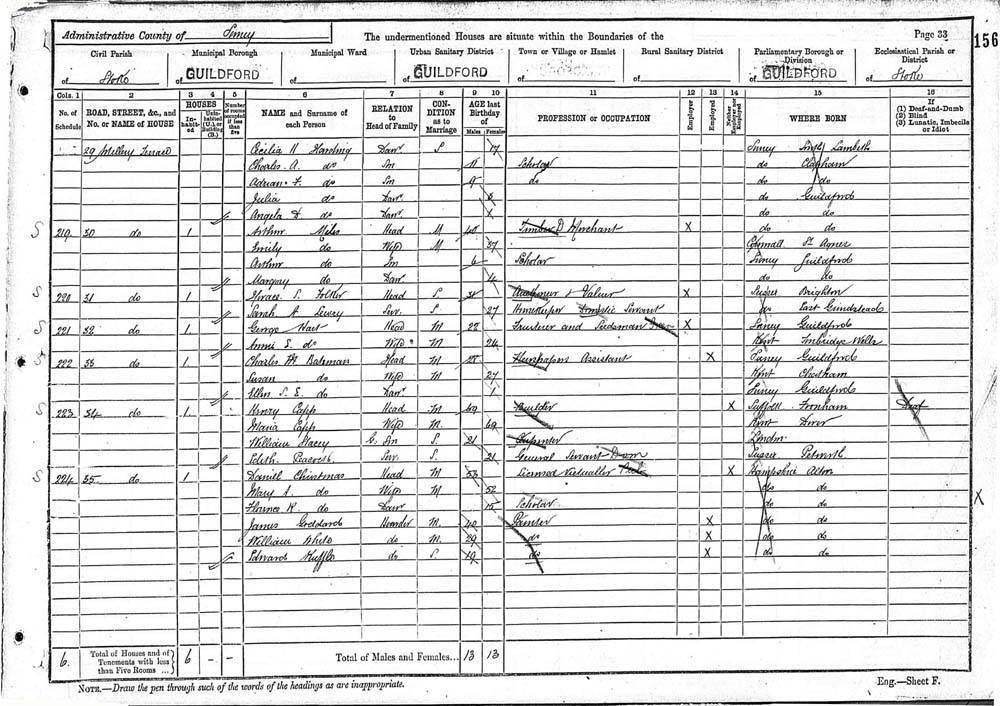 Administrative County of Surrey The undermentioned Houses are situate within the Boundaries of the Page 33
156
Civil Parish Municipal Borough Municipal Ward Urban Sanitary District Town or Village or Hamlet Rural Sanitary District Parliamentary Borough or Division Ecclesiastical Parish or District
of Stoke of GUILDFORD of of GUILDFORD of of of GUILDFORD of Stoke
Cols. 1 2 3 4 5 6 7 8 9 10 11 12 13 14 15 16
No. of Schedule ROAD, STREET, &c., and No. or NAME of HOUSE HOUSES Inhabited Uninhabited (U.) or Building (B.) Number of rooms occupied if less than five NAME and Surname of each Person RELATION to Head of Family CONDITION as to Marriage AGE last Birthday of Males Females PROFESSION or OCCUPATION Employer Employed Neither Employer nor Employed WHERE BORN If (1) Deaf-and-Dumb (2) Blind (3) Lunatic, Imbecile or Idiot
29 Terrace Cecilia Harding Daur S 17 Surrey Lambeth
Charles A. do Son 11 Scholar do Clapham
Adrian F. do Son 9 do do do
Julia do Daur do Guildford
Angela do Daur do do
219 30 do 1 Arthur Miles Head M Timber Merchant X do do
Emily do Wife M 37 Cornwall St Agnes
Arthur do Son 6 Scholar Surrey Guildford
Margery do Daur 4 do do
220 31 do 1 Horace S. Head S 31 Auctioneer & Valuer X Sussex Brighton
Sarah A Serv. S 27 Housekeeper Domestic Servant do East Grinstead
221 32 do 1 George Hart Head M 22 Fruiterer and Seedsman X Surrey Guildford
Annie S. do Wife M 24 Kent Tunbridge Wells
222 33 do 1 Charles Head M 28 Assistant X Surrey Guildford
Susan do Wife M 27 Kent Chatham
Ellen S. E. do Daur 1 Surrey Guildford
223 34 do 1 Henry Epps Head M 69 Builder X Suffolk Deaf
Maria Epps Wife M 69 Kent Dover
William Stacey G. Son S. 21 Carpenter London
Edith Serv. S 21 General Servant Dom Sussex Petworth
224 35 do 1 Daniel Christmas Head M 53 Licensed Victualler X Hampshire Alton
Mary A. do Wife M 52 do do
Florence K. do Daur 15 Scholar do do
James Goddard Boarder M. 40 Painter X do do
William White do M. 29 do X do do
Edward do S 19 do X do do
6. Total of Houses and of Tenements with less than Five Rooms ... 6 - - Total of Males and Females... 13 13
NOTE.—Draw the pen through such of the words of the headings as are inappropriate. Eng.—Sheet F.